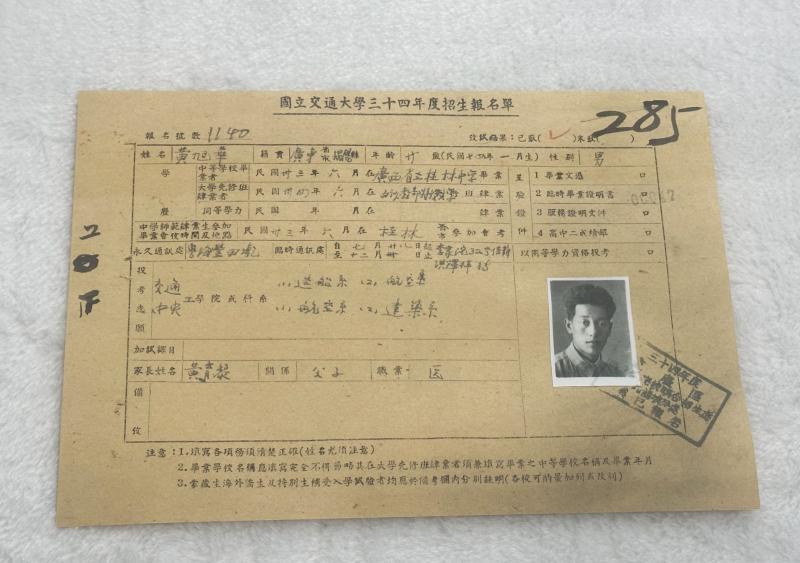 國立交通大學三十四年度招生報名單
285
報名號數 1140 攷試結果:已取( ✓ )未取( )
姓名 黃旭華 籍貫 廣東省 揭陽縣 年齡 廿 歲(民國 年 一 月生) 性別 男
學歷 中等學校畢業者 民國 卅三 年 六 月在 廣西省立桂林中學 畢業 呈驗證件 1 畢業文憑 口
大學先修班肄業者 民國 卅四 年 六 月在 班肄業 2 臨時畢業證明書 口
同等學力 民國 年 月在 肄業 3 服務證明文件 口
中學師範肄業生參加畢業會攷時間及地點 民國 卅三 年 六 月在 桂林 省市 參加會考 4 高中二成績單 口
永久通訊處 臨時通訊處 自 七 月 廿八 日起 至 十二 月 卅 日止 以同等學力資格投考 口
投考志願 交通 中央 工學院或科系
(1) 造船系 (2) 航空系
(1) 航空系 (2) 建築系
加試課目
家長姓名 黃育 關係 父子 職業 医
備攷
三十四年度
已報名
注意:1.填寫各項務須清楚正確(姓名尤須注意)
2.畢業學校名稱應填寫完全不得節略其在大學先修班肄業者須兼填寫畢業之中等學校名稱及畢業年月
3.蒙藏生海外僑生及特別生補受入學試驗者均應於備考欄內分別註明(各校可酌量加列或改列)